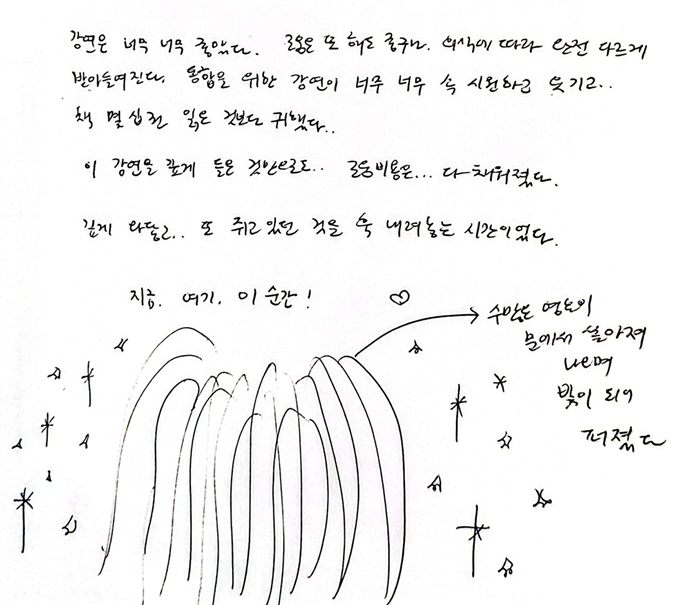 강연은 너무 너무 좋았다. 교육은 또 해도 좋구나. 의식에 따라 완전 다르게
받아들여진다. 통합을 위한 강연이 너무 너무 속 시원하고 웃기고..
책 몇 십권 읽은 것보다 귀했다..
이 강연을 깊게 들은 것만으로도.. 교육비용은... 다 채워졌다.
깊게 와닿고.. 또 쥐고 있던 것을 훅 내려놓는 시간이었다.
지금. 여기. 이 순간!
수많은 영혼이
문에서 쏟아져
나오며
빛이 되어
퍼졌다